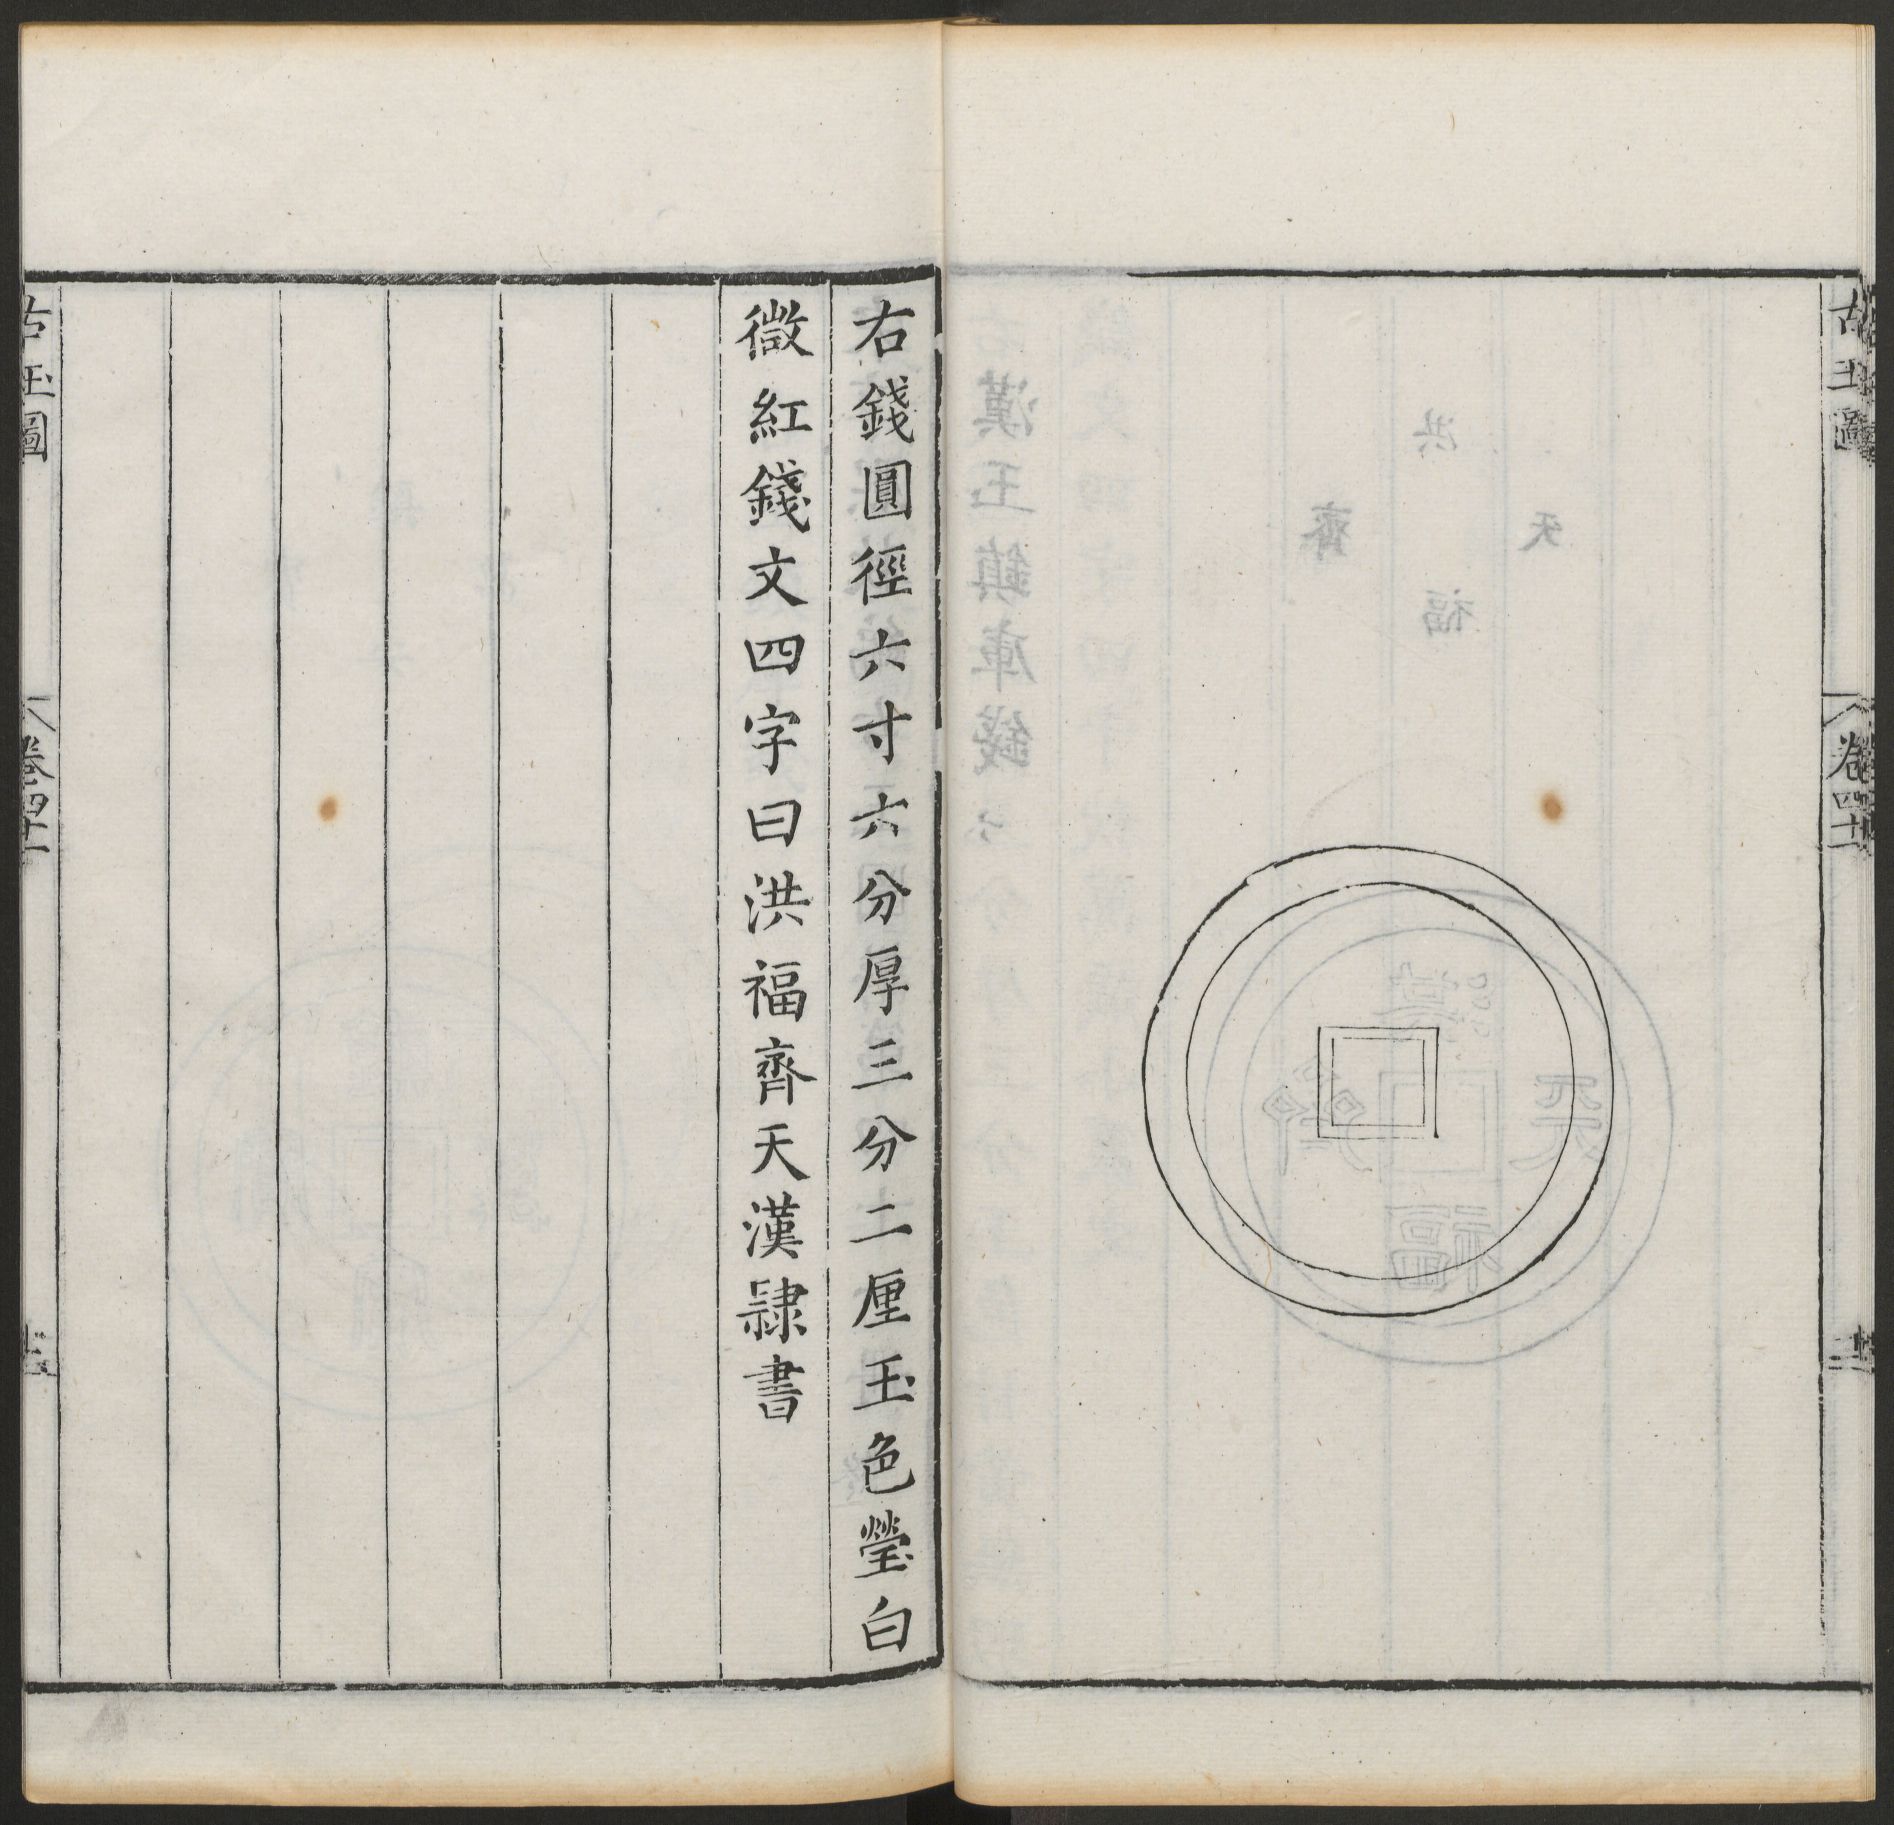 古玉圖
卷四十一
右錢圓徑六寸六分厚三分二厘玉色瑩白
微紅錢文四字曰洪福齊天漢隸書
古玉圖
卷四十一